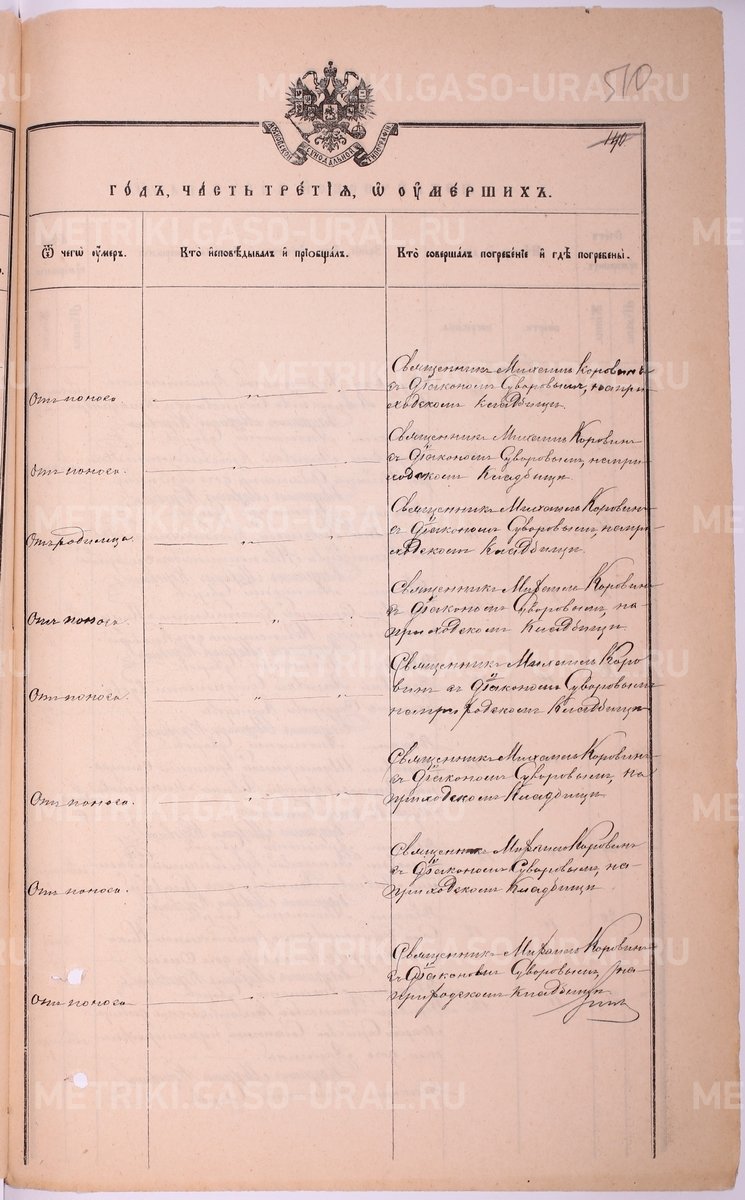 METRIKI.GASO-URAL.RU
510
140
МОСКОВСКОЙ СѴНОДАЛЬНОЙ ТИПОГРАФІИ
ГОДЪ, ЧАСТЬ ТРЕТІЯ, Ѿ ОУМЕРШИХЪ.
Ѿ чегѡ оумеръ.
Кто исповѣдывалъ и пріобщалъ.
Кто совершалъ погребеніе и гдѣ погребены.
Отъ поноса
Священникъ Михаилъ Коровинъ
съ Діакономъ Суворовымъ, на при-
ходскомъ Кладбищи.
Отъ поноса.
Священникъ Михаилъ Коровинъ
съ Діакономъ Суворовымъ, на при-
ходскомъ Кладбищи
Отъ родимца
Священникъ Михаилъ Коровинъ
съ Діакономъ Суворовымъ, на при-
ходскомъ Кладбищи.
Отъ поноса.
Священникъ Михаилъ Коровинъ
съ Діакономъ Суворовымъ, на-
приходскомъ Кладбищи.
Отъ поноса.
Священникъ Михаилъ Коро-
винъ съ Діакономъ Суворовымъ
на приходскомъ Кладбищи
Отъ поноса.
Священникъ Михаилъ Коровинъ
съ Діакономъ Суворовымъ, на
приходскомъ Кладбищи
Отъ поноса.
Священникъ Михаилъ Коровинъ
съ Діакономъ Суворовымъ, на-
приходскомъ Кладбищи
Отъ поноса
Священникъ Михаилъ Коровинъ
съ Діакономъ Суворовымъ, на-
приходскомъ Кладбищи